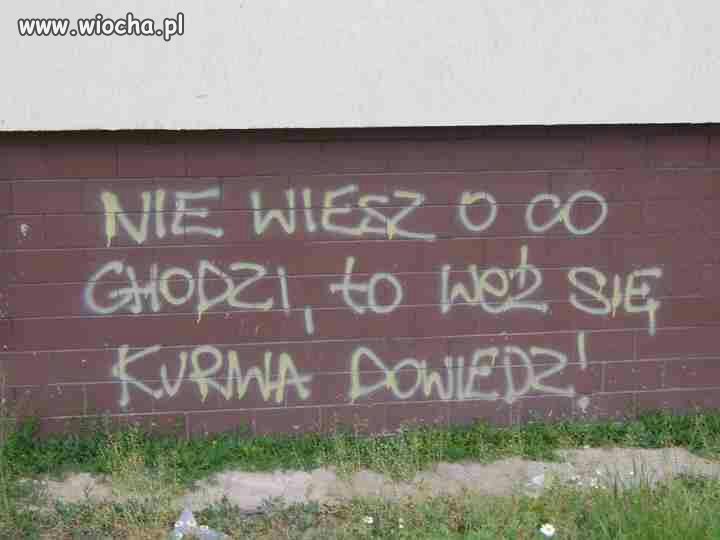 www.wiocha.pl
NIE WIESZ O CO
CHODZI, to WEŹ SIĘ
KURWA DOWIEDZ!